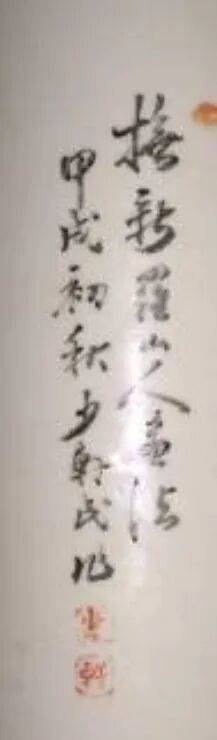 撫新羅山人畫法
甲戌初秋少軒氏作
少軒